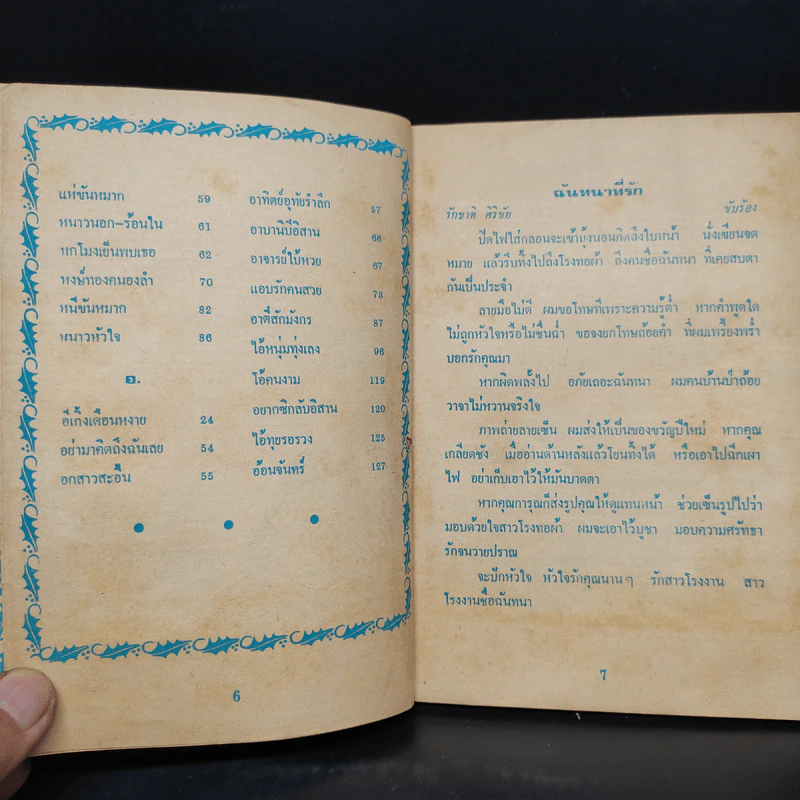 แห่ขันหมาก 59
หนาวนอก-ร้อนใน 61
หกโมงเย็นพบเธอ 62
หงษ์ทองคนองลำ 70
หนีขันหมาก 82
หนาวหัวใจ 86
อ.
อีเก้งเดือนหงาย 24
อย่ามาคิดถึงฉันเลย 54
อกสาวสะอื้น 55
อาทิตย์อุทัยรำลึก 57
อาบานีบีอิสาน 66
อาจารย์ใบ้หวย 67
แอบรักคนสวย 73
อาตี๋สักมังกร 87
ไอ้หนุ่มทุ่งเลง 96
โอ้คนงาม 119
อยากซิกลับอิสาน 120
ไอ้ทุยรอรวง 125
อ้อนจันทร์ 127
6
ฉันทนาที่รัก
รักชาติ ศิริชัย ขับร้อง
ปิดไฟใส่กลอนจะเข้ามุ้งนอนคิดถึงใบหน้า นั่งเขียนจด
หมาย แล้วรีบทิ้งไปถึงโรงทอผ้า ถึงคนชื่อฉันทนา ที่เคยสบตา
กันเป็นประจำ
ลายมือไม่ดี ผมขอโทษที่เพราะความรู้ต่ำ หากคำพูดใด
ไม่ถูกหัวใจหรือไม่ชื่นฉ่ำ ขอจงยกโทษถ้อยคำ ที่ผมเพรี่ยงพร่ำ
บอกรักคุณมา
หากผิดพลั้งไป อภัยเถอะฉันทนา ผมคนบ้านป่าถ้อย
วาจาไม่หวานจริงใจ
ภาพถ่ายลายเซ็น ผมส่งให้เป็นของขวัญปีใหม่ หากคุณ
เกลียดชัง เมื่ออ่านด้านหลังแล้วโยนทิ้งได้ หรือเอาไปฉีกเผา
ไฟ อย่าเก็บเอาไว้ให้มันบาดตา
หากคุณการุณก็ส่งรูปคุณให้ดูแทนหน้า ช่วยเซ็นรูปไปว่า
มอบด้วยใจสาวโรงทอผ้า ผมจะเอาไว้บูชา มอบความศรัทธา
รักจนวายปราณ
จะปักหัวใจ หัวใจรักคุณนานๆ รักสาวโรงงาน สาว
โรงงานชื่อฉันทนา
7